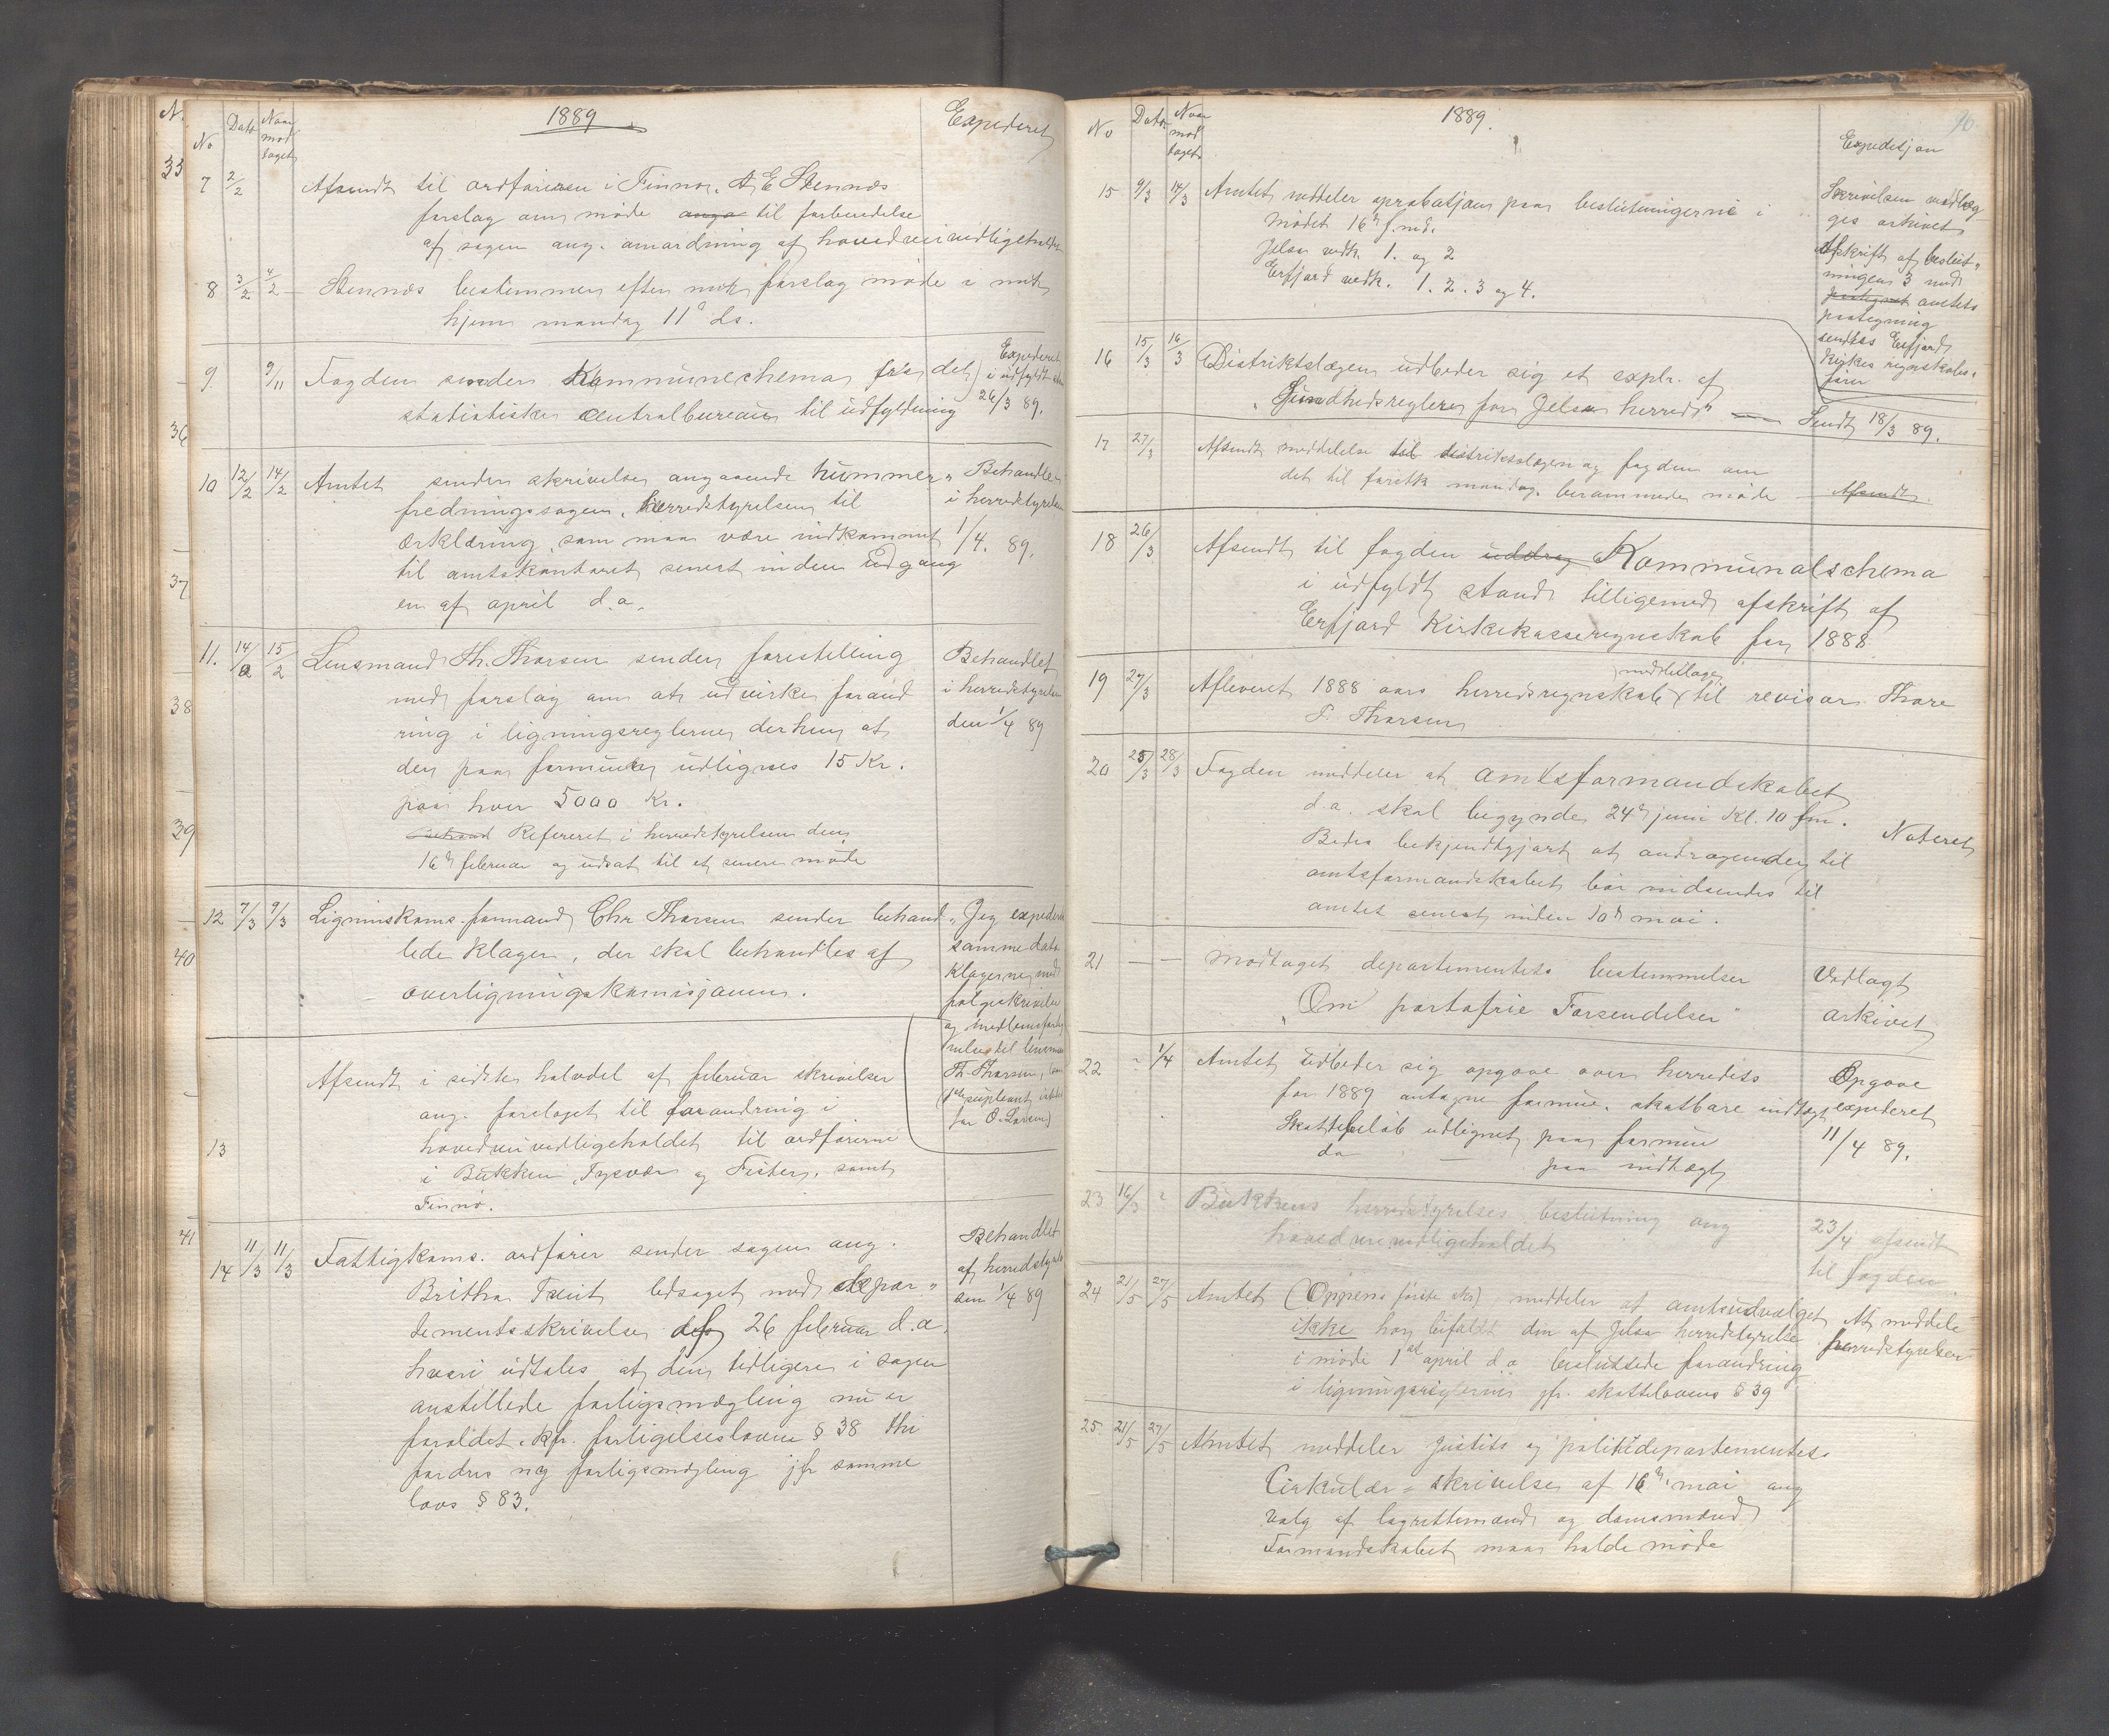 No
Dato
Naar
mod
taget
1889
Expederet
7 2/2 Afsendt til ordföreren i Finnö. A E Stennæs
forslag om möde anga til forberedelse
af sagen ang. omordning af hovedveivedligeholdet
8 3/2 4/2 Stennæs bestemmer efter mit forslag möde i mit
hjem mandag 11te ds.
9 9/11 Fogden sender Kommuneschema fra det
statistiske centralbureau til udfyldning
Expederet
i udfyldt
26/3 89.
10 12/2 14/2 Amtet sender skrivelse angaaende hummer-
fredningssagen, herredstyrelsen til
erklæring, som maa være indkommet
til amtskontoret senest inden udgang
en af april d.a.
Behandlet
i herredstyrelsen
1/4. 89.
11. 14/2 15/2 Lensmand Th. Thorsen sender forestilling
med forslag om at udvirke forand
ring i ligningsreglerne derhen at
der paa formue udlignes 15 Kr.
paa hver 5000 Kr.
Refereret i herredstyrelsen den
16de februar og udsat til et senere möde
Behandlet
i herredstyrelsen
den 1/4 89
12 7/3 9/3 Ligninskoms. formand Chr Thorsen sender behand
lede klager, der skal behandles af
overligningskomisjonen.
"Jeg expederer
samme dato
klagerne med
fölgeskrivelse
og medlemsforteg
nelse til lensmand
Th. Thorsen,
(1ste supleant istedet
for O. Larsen)
13 Afsendt i sidste halvdel af februar skrivelser
ang. forslaget til forandring i
hovedveivedligeholdet til ordförerne
i Bukken, Tysvær og Fister, samt
Finnö.
14 11/3 11/3 Fattigkoms. ordförer sender sagen ang.
Britha Tveit ledsaget med depar-
tementsskrivelse af 26 februar d.a.
hvori udtales at den tidligere i sagen
anstillede forligsmægling nu er
foraldet. kfr. forligelsesloven § 38 thi
fordres ny forligsmægling jfr samme
lovs § 83.
Behandlet
af herredstyrelsen
den 1/4 89
33
36
37
38
39
40
41
No
Dato
Naar
mod
taget
1889.
Expedisjon
90.
15 9/3 14/3 Amtet meddeler aprobatsjon paa beslutningerne i
mödet 16de f.md.
Jelsa vedk. 1. og 2
Erfjord vedk. 1. 2. 3 og 4.
Skrivelsen vedlæg
ges arkivet
Afskrift af beslut-
ningen 3 med
paategnet amtets
paategning
sendtes Erfjord
Kirkes regnskabs-
förer
16 15/3 16/3 Distriktslægen udbeder sig et explr. af
"Sundhedsregler for Jelsa herred" — Sendt 18/3 89.
17 27/3 Afsendt meddelelse til distriktslægen og fogden om
det til förstk mandag berammede möde — Afsendt.
18 26/3 Afsendt til fogden uddrag Kommunalschema
i udfyldt stand tilligemed afskrift af
Erfjord Kirkekasseregnskab for 1888
19 27/3 Afleveret 1888 aars herredsregnskab med bilage til revisor Thore
T. Thorsen
20 25/3 28/3 Fogden meddeler at amtsformandskabet
d.a. skal begynde 24de juni Kl. 10 fm.
Bedes bekjendtgjort at andragender til
amtsformandskabet bör indsendes til
amtet senest inden 10de mai.
Noteret
21 — — Modtaget departementets bestemmelser
"Om portofrie Forsendelser"
Vedlagt
arkivet
22 ? 1/4 Amtet udbeder sig opgave over herredets
for 1889 antagne formue, skatbare indtægt,
Skattebelöb udlignet paa formue
do — paa indtægt
Opgave
expederet
11/4 89.
23 16/3 ? Bukkens herredstyrelses beslutning ang
hovedveivedligeholdet
23/4 afsendt
til fogden
24 21/5 27/5 Amtet (Oppens förste skr) meddeler at amtsudvalget
ikke har bifaldt den af Jelsa herredstyrelse
i möde 1ste april d.a besluttede forandring
i ligningsreglerne jfr. skattelovens § 39
At meddele
herredstyrelsen
25. 21/5 27/5 Amtet meddeler Justits og politidepartementets
Cirkulær-skrivelse af 16de mai ang
valg af lagrettemænd og domsmænd
Formandskabet maa holde möde